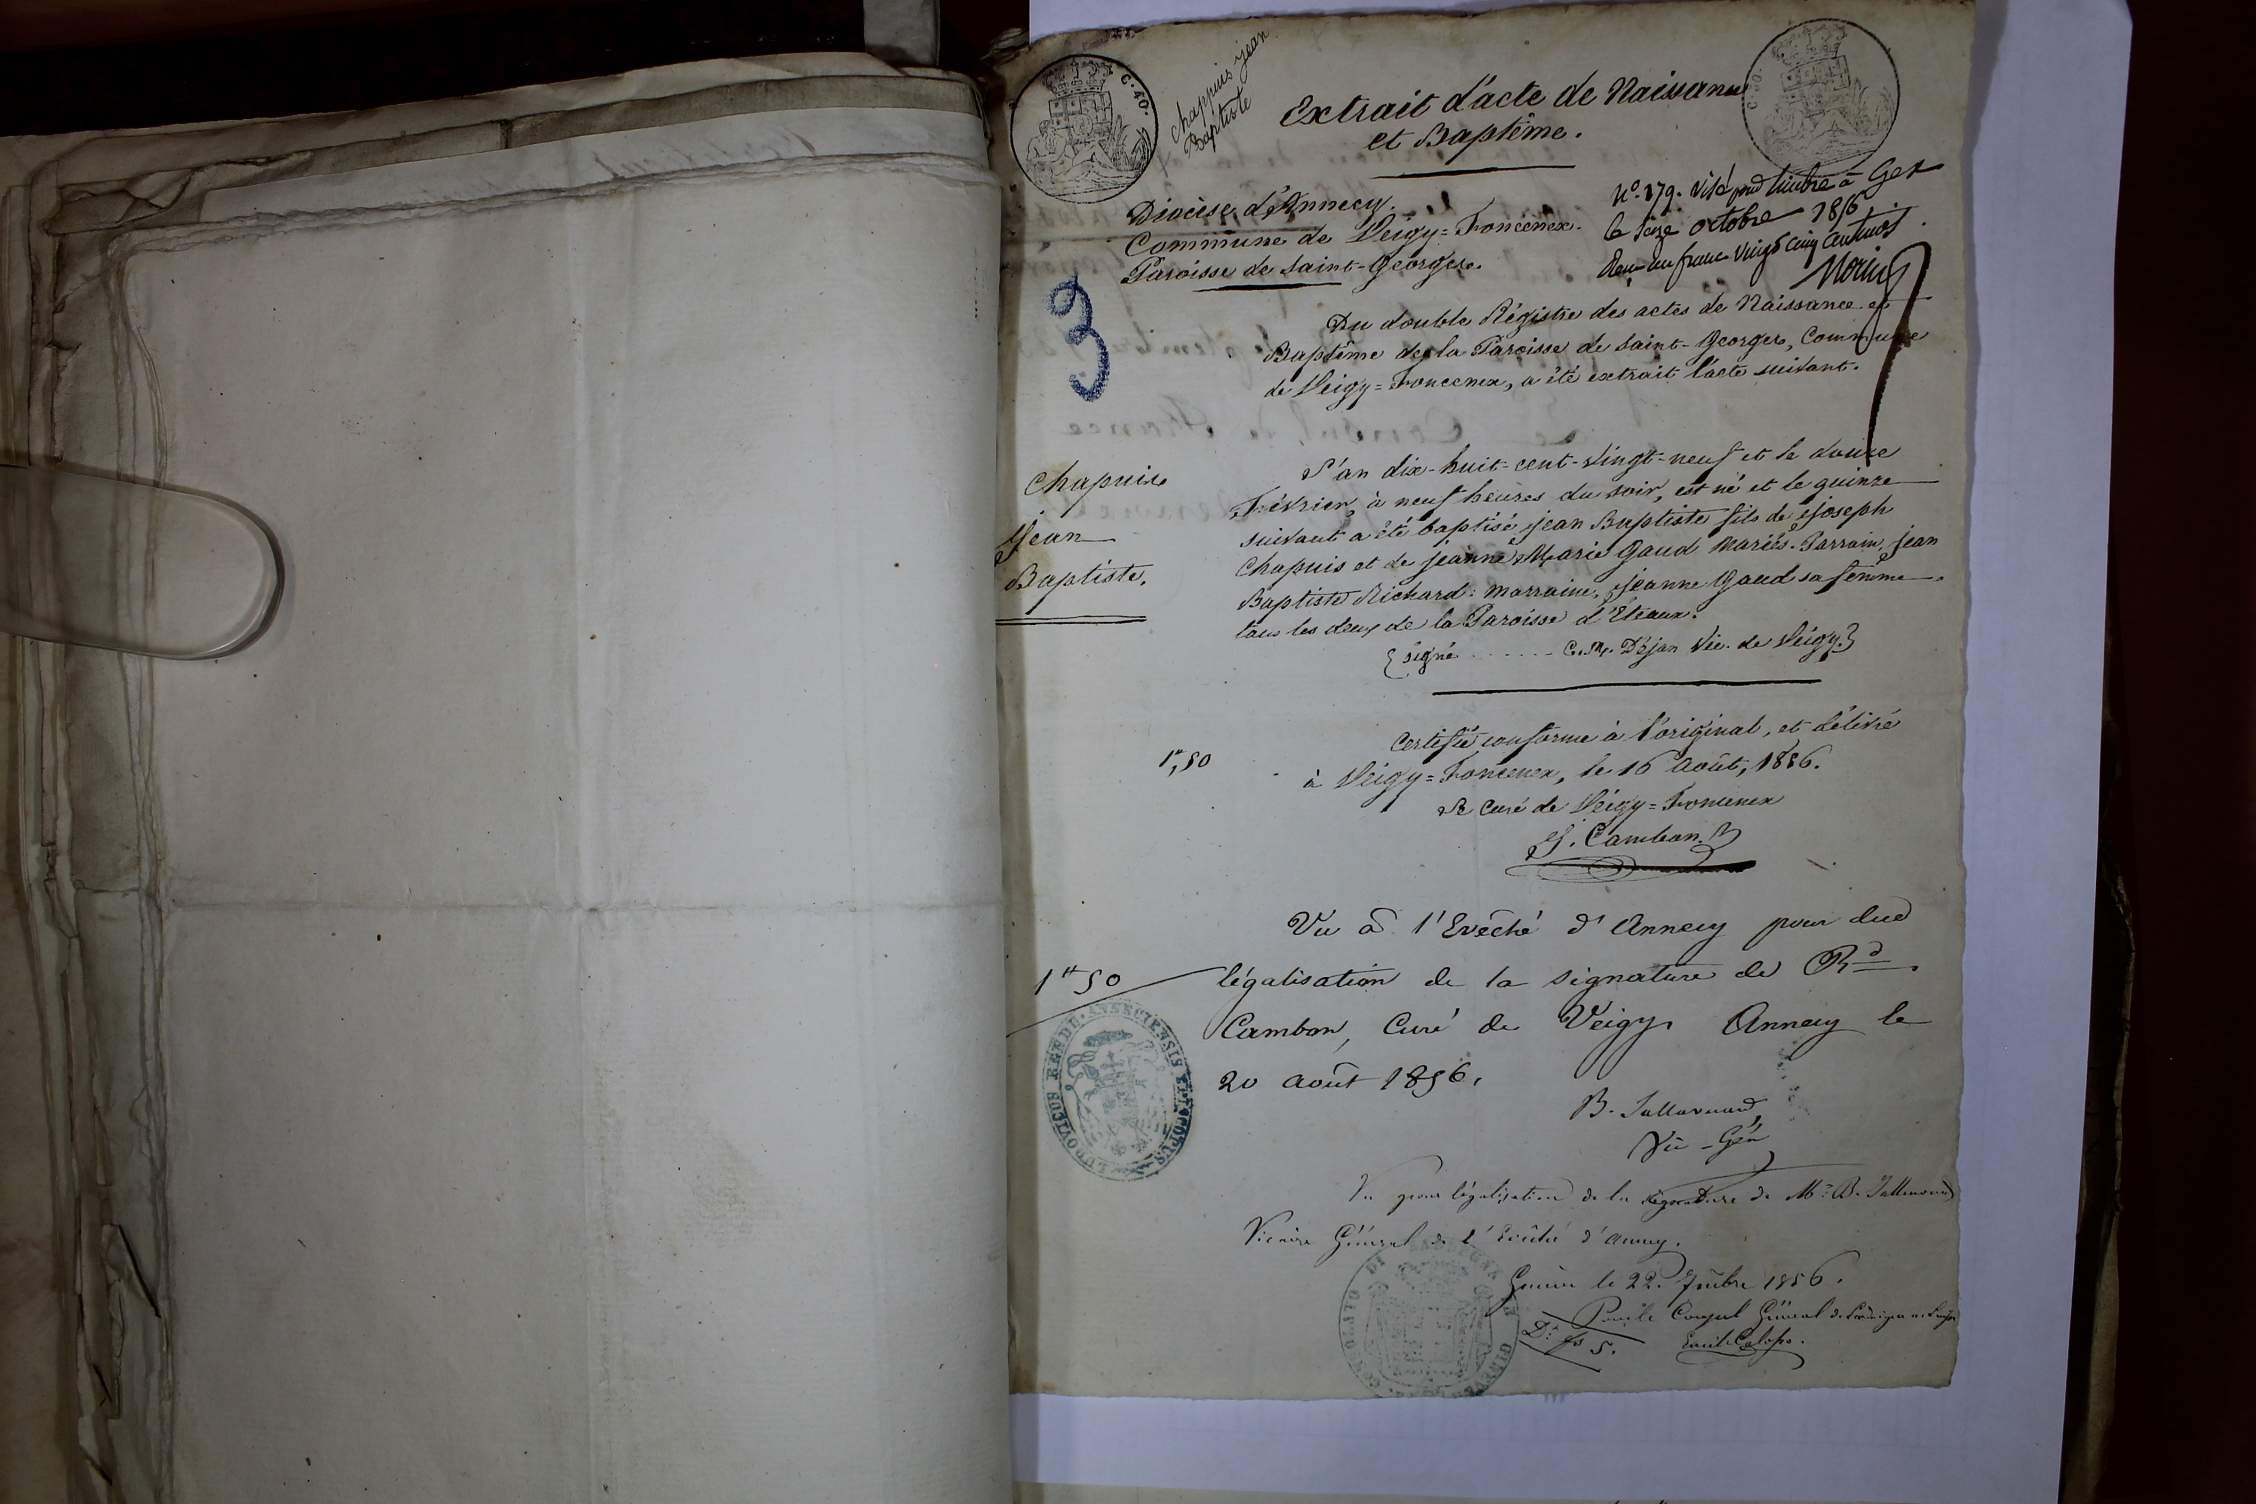 C. 40.
Chappuis Jean
Baptiste
Extrait d'acte de Naissance
et Baptême.
Diocèse d'Annecy.
Commune de Veigy=Foncenex.
Paroisse de Saint-Georges.
N°. 179. Visé pour timbre à Gex
le seize octobre 1856
Reçu un franc vingt cinq centimes.
3
Du double Régistre des actes de Naissance et
Baptême de la Paroisse de Saint-Georges, Commune
de Veigy=Foncenex, a été extrait l'acte suivant.
Chapuis
Jean
Baptiste.
L'an dix-huit-cent-vingt-neuf et le douze
Février, à neuf heures du soir, est né et le quinze
suivant a été baptisé Jean Baptiste fils de Joseph
Chapuis et de Jeanne Marie Gaud Mariés. Parrain, Jean
Baptiste Richard: Marraine, Jeanne Gaud sa femme
tous les deux de la Paroisse d'Eteaux.
{signé ...... C. M. Déjan Vic. de Veigy.}
Certifié conforme à l'original, et délivré
1#,50
à Veigy=Foncenex, le 16 Août, 1856.
Le Curé de Veigy=Foncenex
J. Cambon
Vu à l'Evêché d'Annecy pour due
1# 50
légalisation de la signature de Rd.
Cambon, Curé de Veigy. Annecy le
20 août 1856.
LUDOVICUS RENDU ANNECIENSIS EPISCOPUS
Vic-Gén
Vu pour légalisation de la signature de Mr. B.
Vicaire Général de l'Evêché d'Annecy.
Genève le 22. 7mbre 1856.
Pour le Consul Général de Sardaigne en Suisse
Dt. fs 5.
CONSOLATO DI SARDEGNA GINEVRA